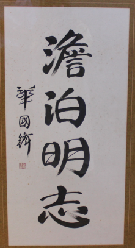 澹泊明志
華國鋒